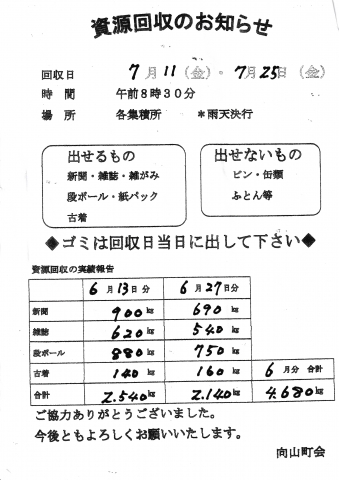 資源回収のお知らせ
回収日 7月11(金)・7月25日(金)
時間 午前8時30分
場所 各集積所 *雨天決行
出せるもの
新聞・雑誌・雑がみ
段ボール・紙パック
古着
出せないもの
ビン・缶類
ふとん等
◆ゴミは回収日当日に出して下さい◆
資源回収の実績報告
6月13日分 6月27日分
新聞 900kg 690kg
雑誌 620kg 540kg
段ボール 880kg 750kg
古着 140kg 160kg 6月分 合計
合計 2.540kg 2.140kg 4.680kg
ご協力ありがとうございました。
今後ともよろしくお願いいたします。
向山町会